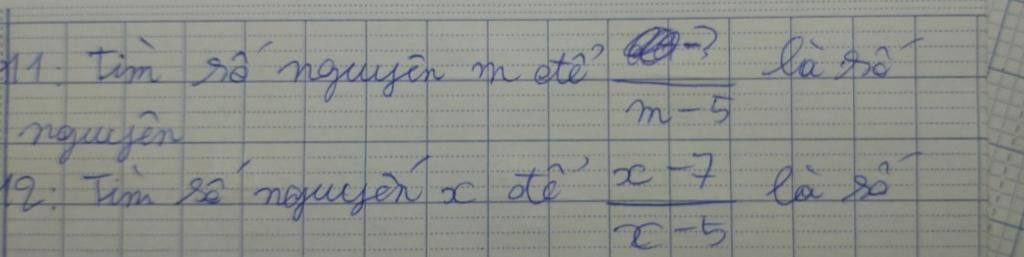 11: Tìm số nguyên m để -7/m-5 là số
nguyên
12: Tìm số nguyên x để x-7/x-5 là số